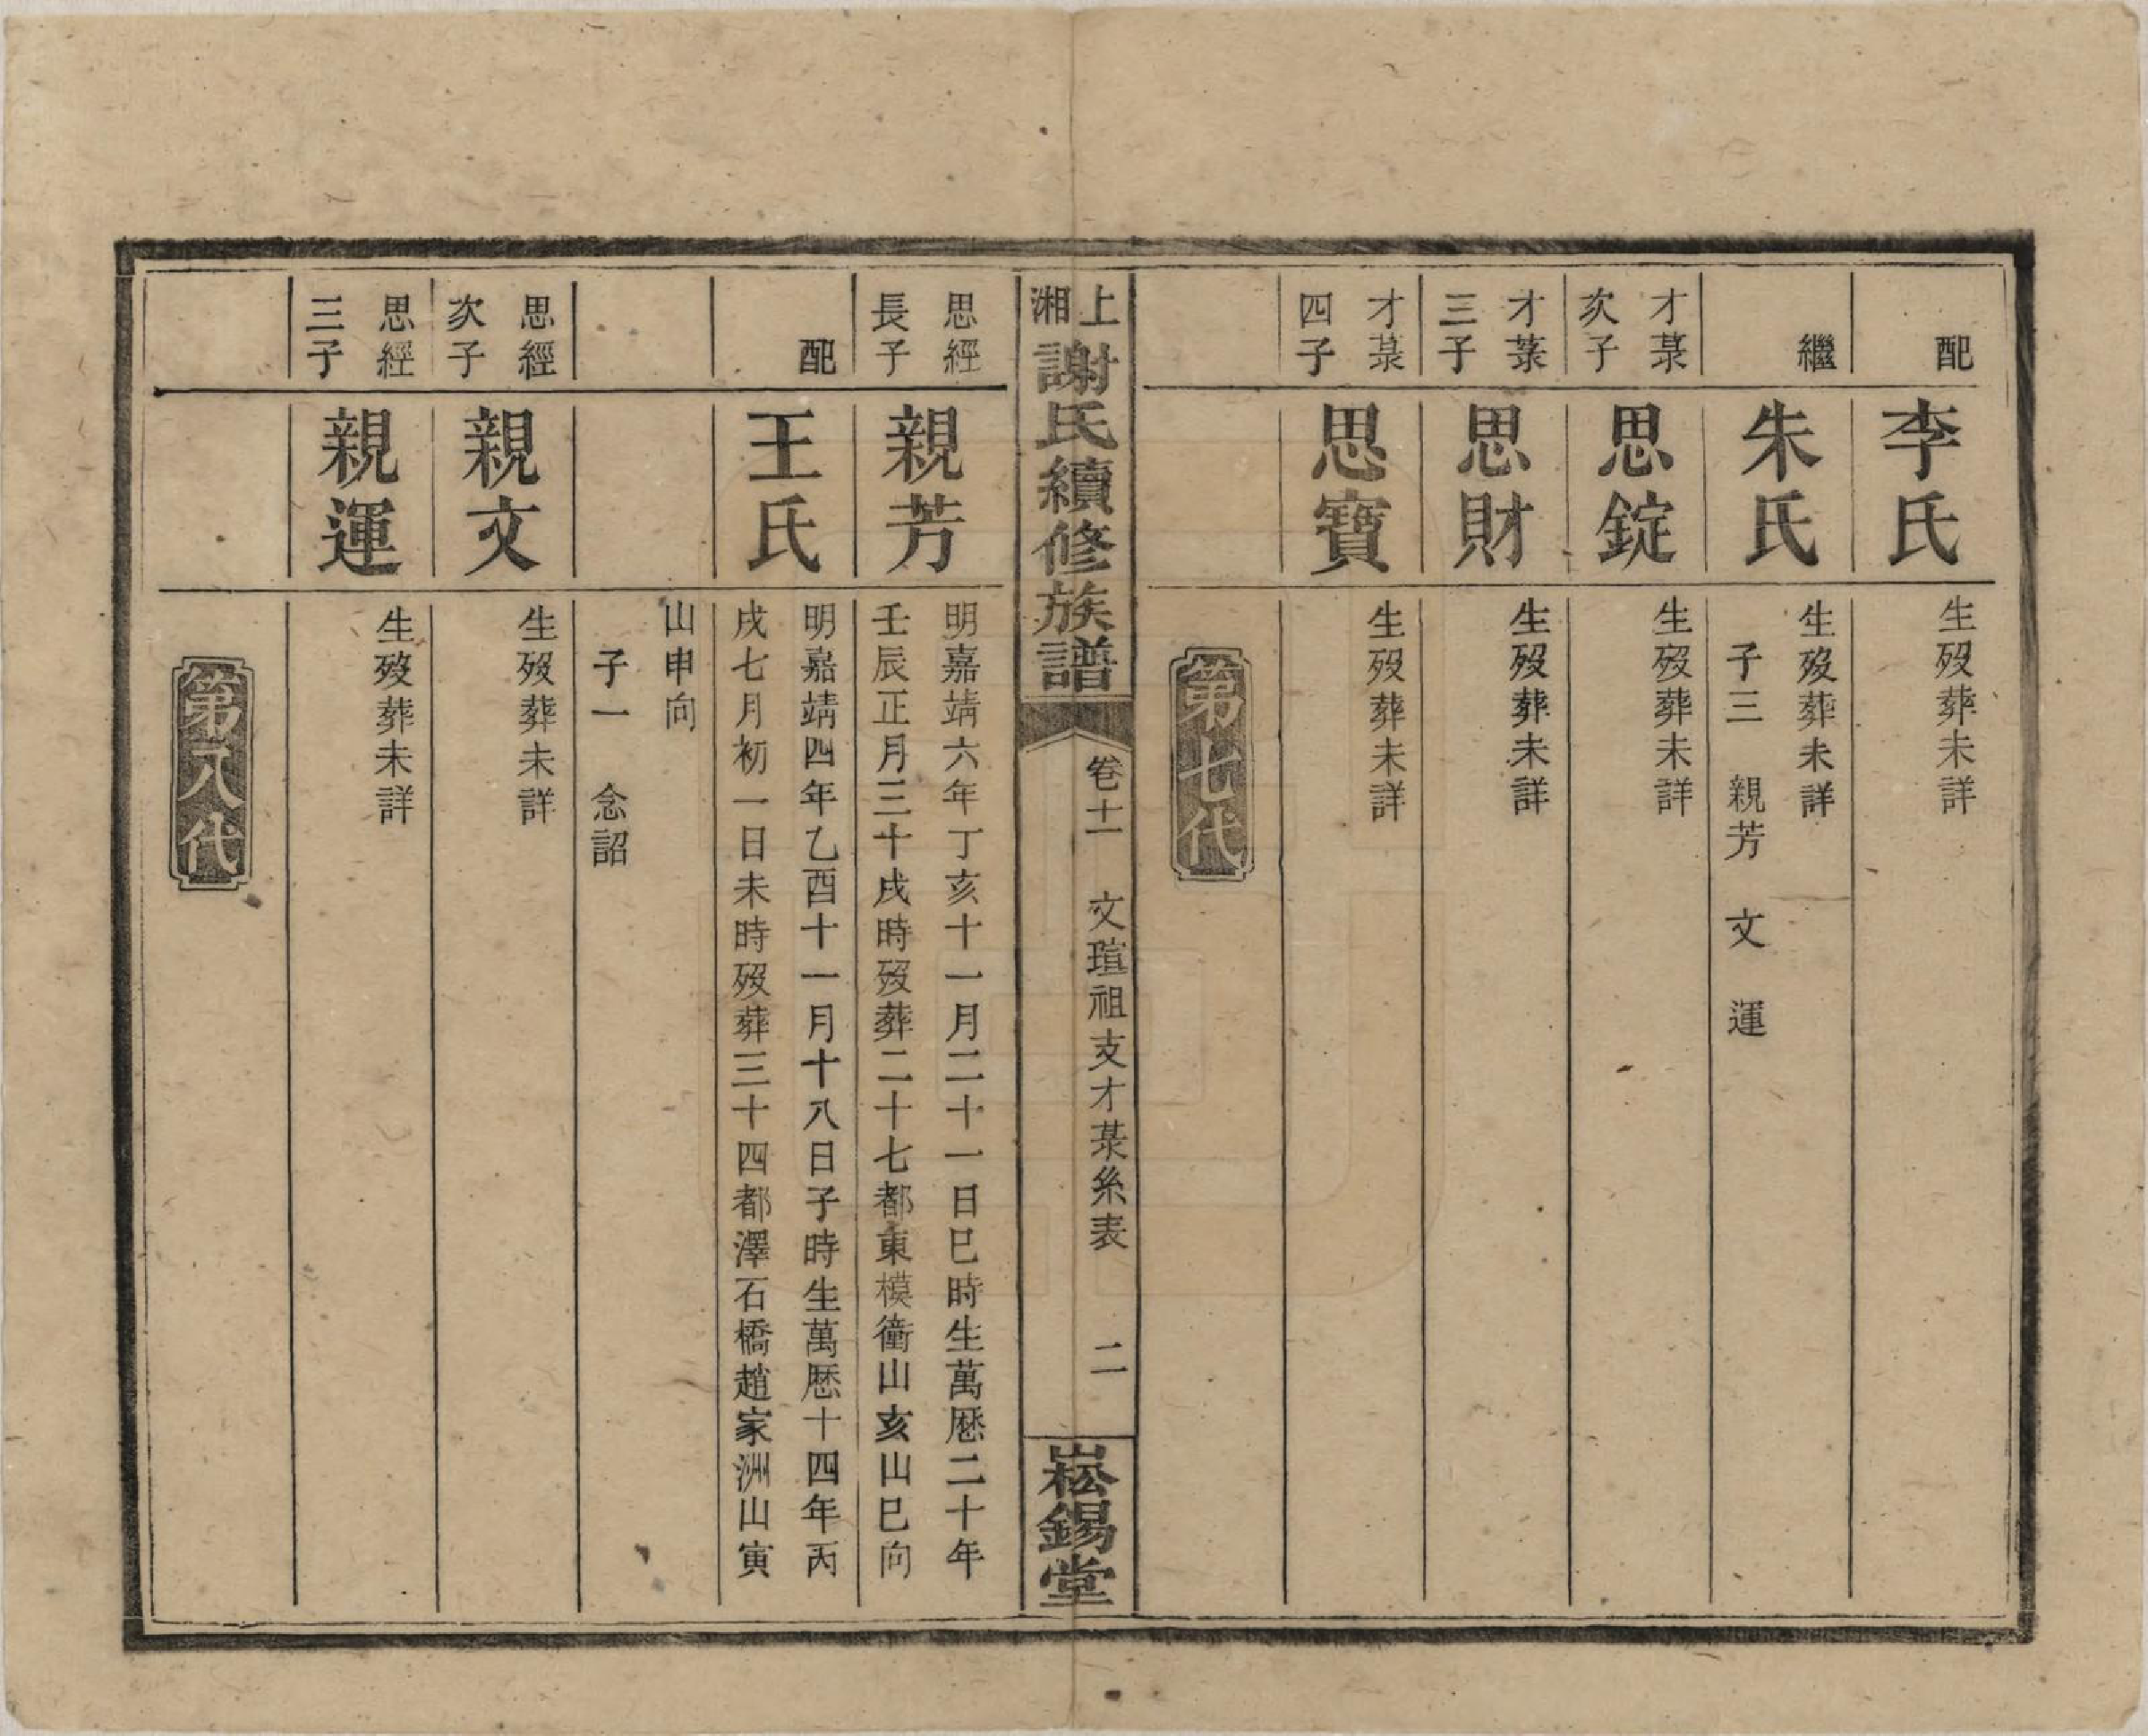 配
李氏
生歿葬未詳
繼
朱氏
生歿葬未詳
子三 親芳 文 運
才菉
次子
思錠
生歿葬未詳
才菉
三子
思財
生歿葬未詳
才菉
四子
思寶
生歿葬未詳
第七代
上湘
謝氏續修族譜
卷十一 文瑄祖支才菉糸表 二
崧錫堂
思經
長子
親芳
明嘉靖六年丁亥十一月二十一日巳時生萬厯二十年
壬辰正月三十戌時歿葬二十七都東模衝山亥山巳向
配
王氏
明嘉靖四年乙酉十一月十八日子時生萬厯十四年丙
戌七月初一日未時歿葬三十四都澤石橋趙家洲山寅
山申向
子一 念詔
思經
次子
親文
生歿葬未詳
思經
三子
親運
生歿葬未詳
第八代